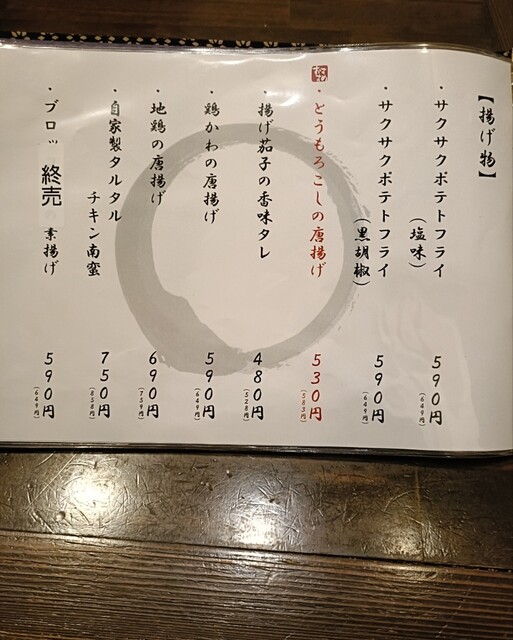 【揚げ物】
・サクサクポテトフライ
(塩味)
590円
(649円)
・サクサクポテトフライ
(黒胡椒)
590円
(649円)
・とうもろこしの唐揚げ
530円
(583円)
・揚げ茄子の香味タレ
480円
(528円)
・鶏かわの唐揚げ
590円
(649円)
・地鶏の唐揚げ
690円
(759円)
・自家製タルタル
チキン南蛮
750円
(858円)
・ブロッ
終売
素揚げ
590円
(649円)